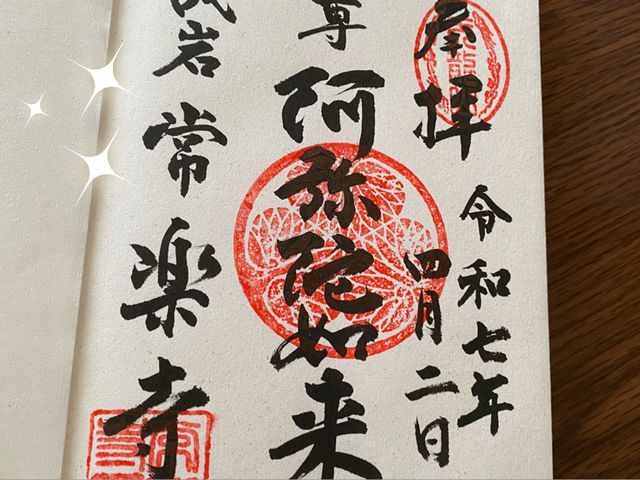 奉拝
令和七年
四月二日
尊
阿弥陀如来
岩
常楽寺